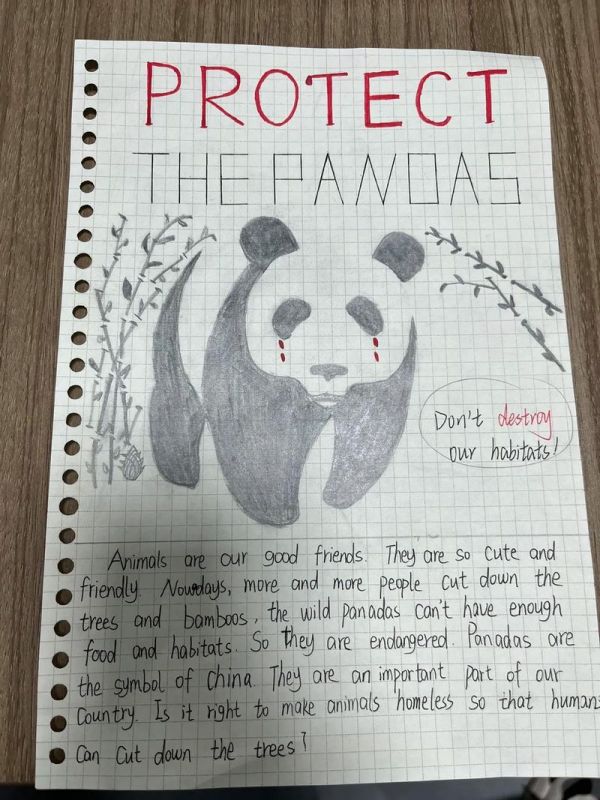 PROTECT
THE PANDAS
Don't destroy
our habitats!
Animals are our good friends. They are so cute and
friendly. Nowdays, more and more people cut down the
trees and bamboos, the wild panadas can't have enough
food and habitats. So they are endangered. Panadas are
the symbol of China. They are an important part of our
Country. Is it right to make animals homeless so that humans
can cut down the trees?